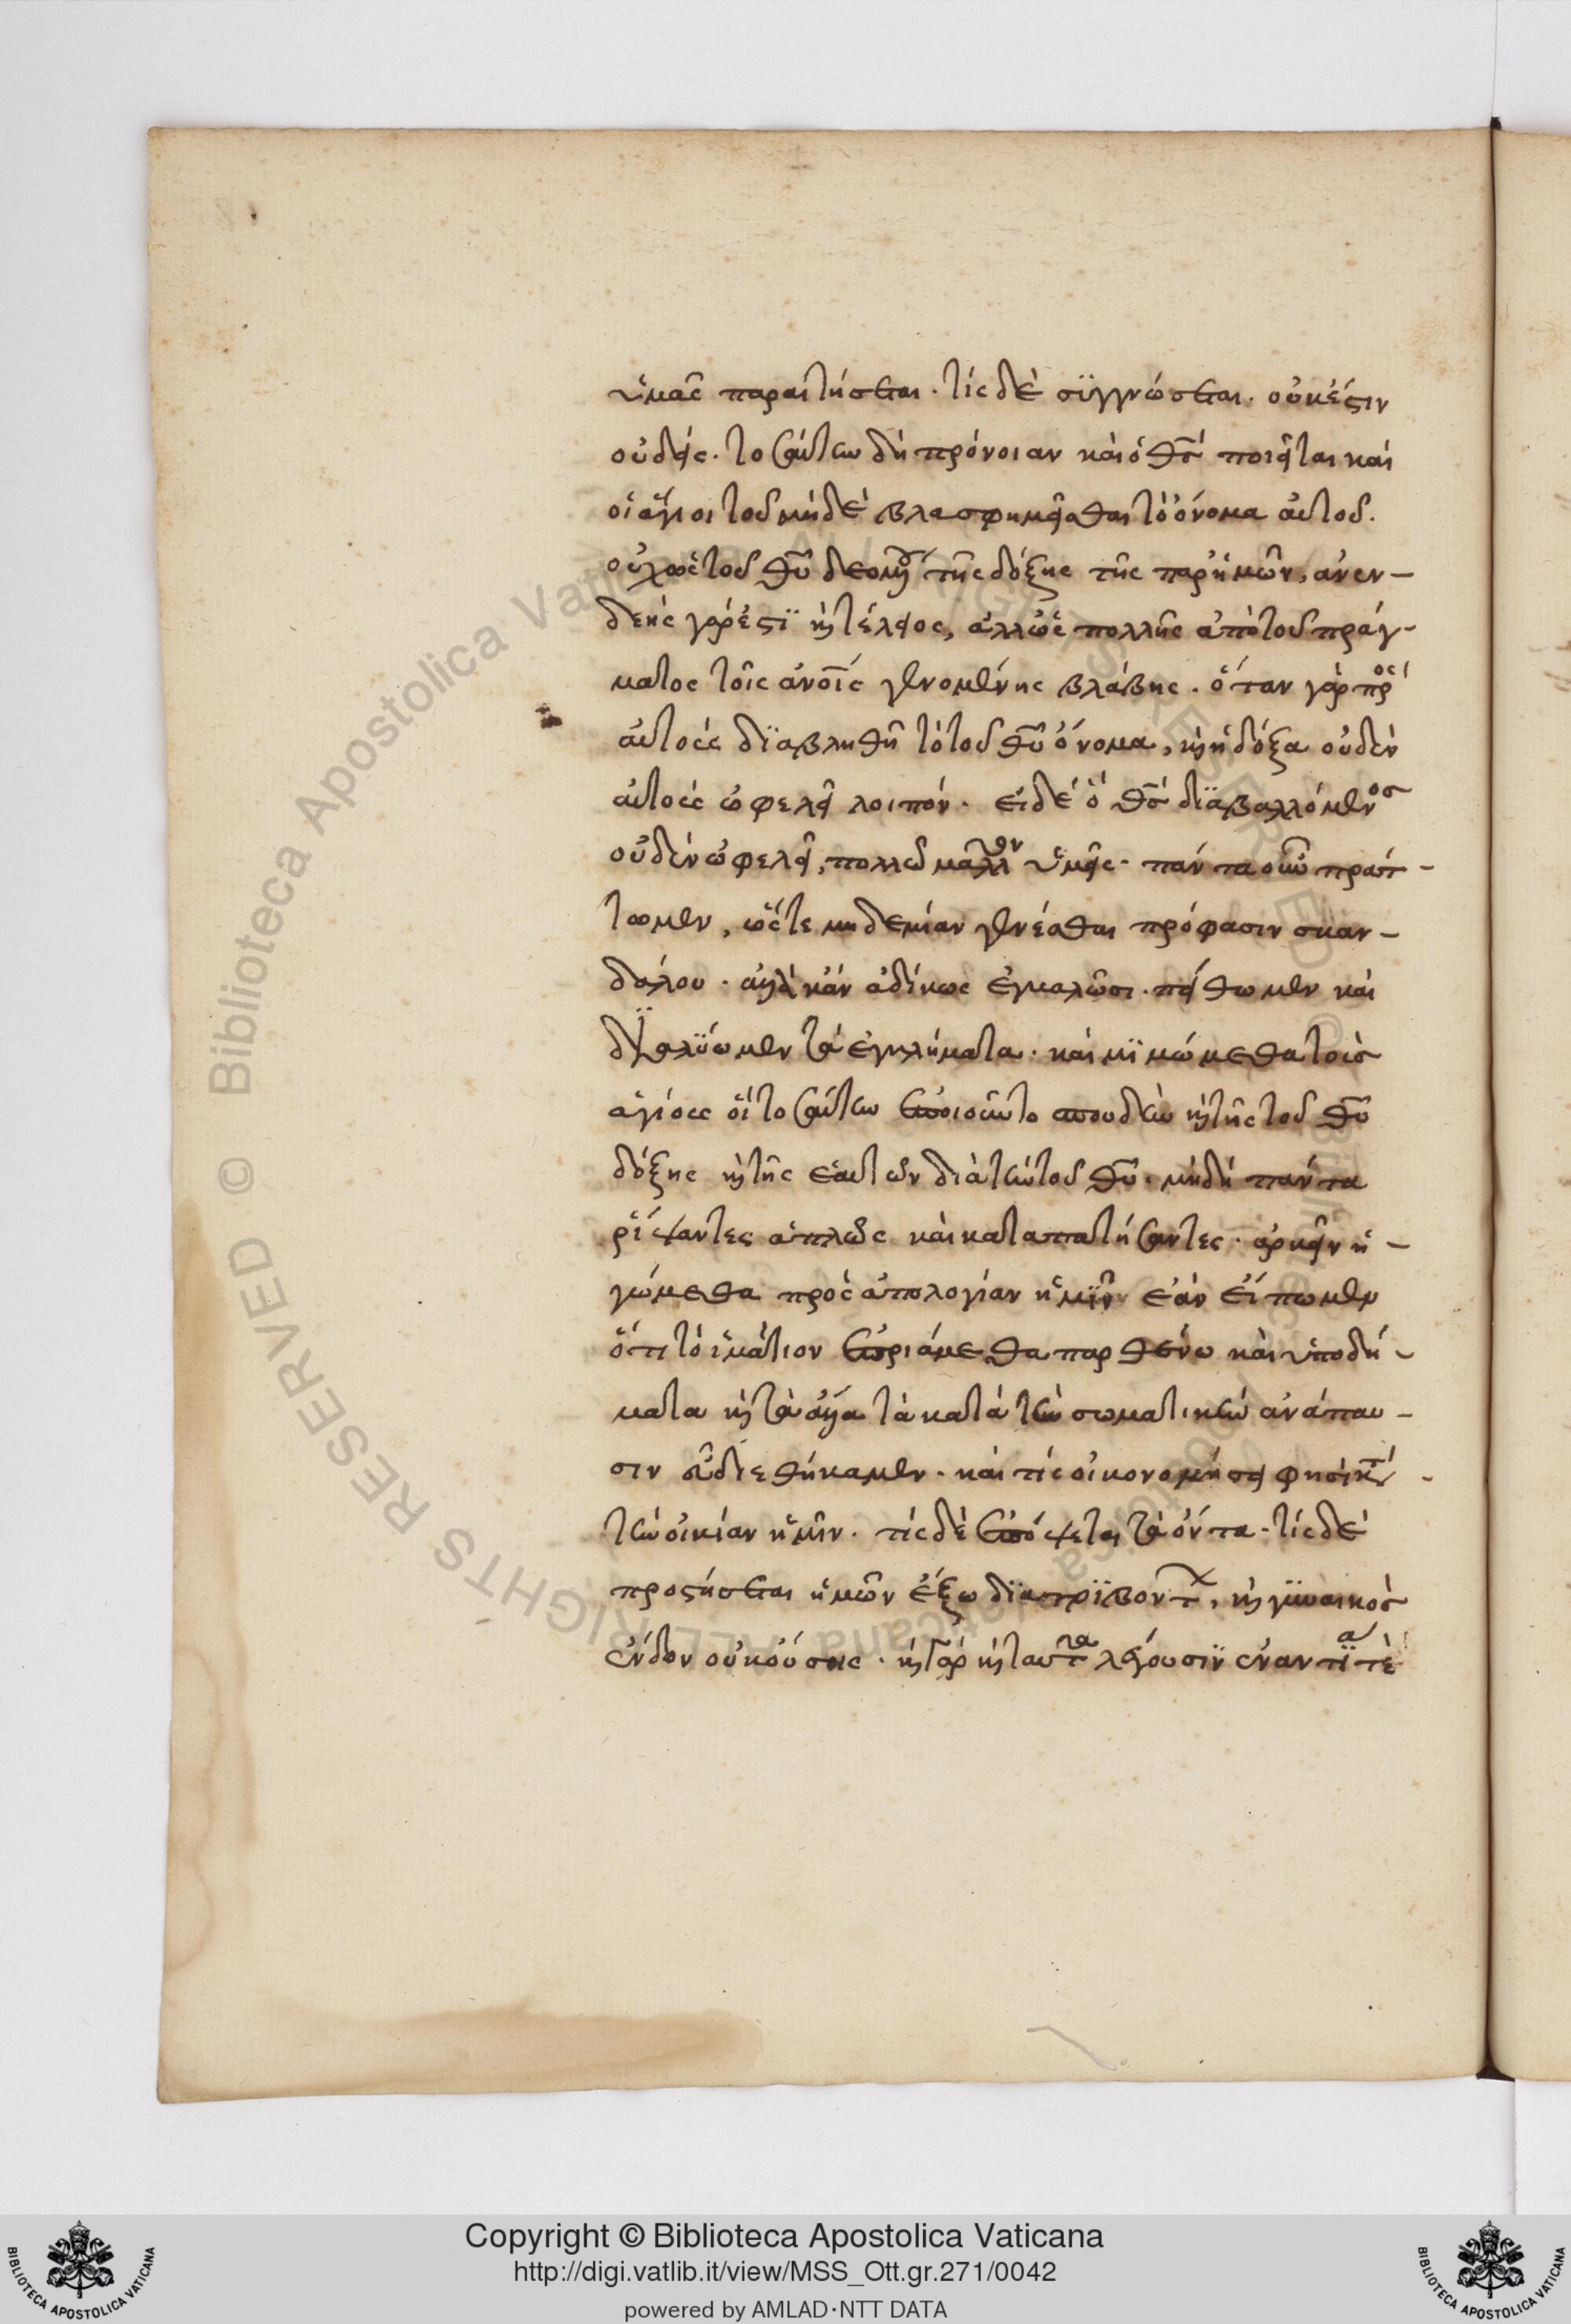 ὑμᾶς παραιτήσεται. τίς δὲ συγγνώσεται. οὐκ ἔστιν
οὐδείς. τοσαύτην δὴ πρόνοιαν καὶ ὁ θς ποιεῖται καὶ
οἱ ἅγιοι τοῦ μηδὲ βλασφημεῖσθαι τὸ ὄνομα αὐτοῦ.
οὐχ ὡς τοῦ θυ δεομέ τῆς δόξης τῆς παρ' ἡμῶν, ἀνεν-
δεὴς γάρ ἐστι κὶ τέλειος, ἀλλ' ὡς πολλῆς ἀπὸ τοῦ πράγ-
ματος τοῖς ἀνοις γενομένης βλάβης. ὅταν γὰρ πρὸς
αὐτοὺς διαβληθῆ τὸ τοῦ θυ ὄνομα, κὶ ἡ δόξα οὐδὲν
αὐτοὺς ὠφελεῖ λοιπόν. εἰ δὲ ὁ θς διαβαλλόμενος
οὐδὲν ὠφελεῖ, πολλῶ μᾶλλον ὑμεῖς. πάντα οὖν πράτ-
τωμεν, ὥστε μηδεμίαν γενέσθαι πρόφασιν σκαν-
δάλου. ἀλλὰ κἂν ἀδίκως ἐγκαλῶσι. πείθωμεν καὶ
διαλύωμεν τὰ ἐγκλήματα. καὶ μιμώμεθα τοὺς
ἁγίους οἳ τοσαύτην ἐποιοῦντο σπουδὴν κὶ τῆς τοῦ θυ
δόξης κὶ τῆς ἑαυτῶν διὰ τὴν τοῦ θυ. μὴ δὴ πάντα
ῥίψαντες ἁπλῶς καὶ καταπατήσαντες. ἀρκεῖν ἡ-
γώμεθα πρὸς ἀπολογίαν ἡμῖν ἐὰν εἴπωμεν
ὅτι τὸ ἱμάτιον ἐπριάμεθα παρθένω καὶ ὑποδή-
ματα κὶ τὰ ἄλλα τὰ κατὰ τὴν σωματικὴν ἀνάπαυ-
σιν εὖ διεθήκαμεν. καὶ τίς οἰκονομήσει φησὶ κτ
τὴν οἰκίαν ἡμῖν. τίς δὲ ἐπόψεται τὰ ὄντα. τίς δὲ
προστήσεται ἡμῶν ἔξω διατριβόντ, κὶ γυναικὸς
ἔνδον οὐκ οὔσης. κὶ γὰρ κὶ ταῦτα λέγουσιν ἐναντία τὲ